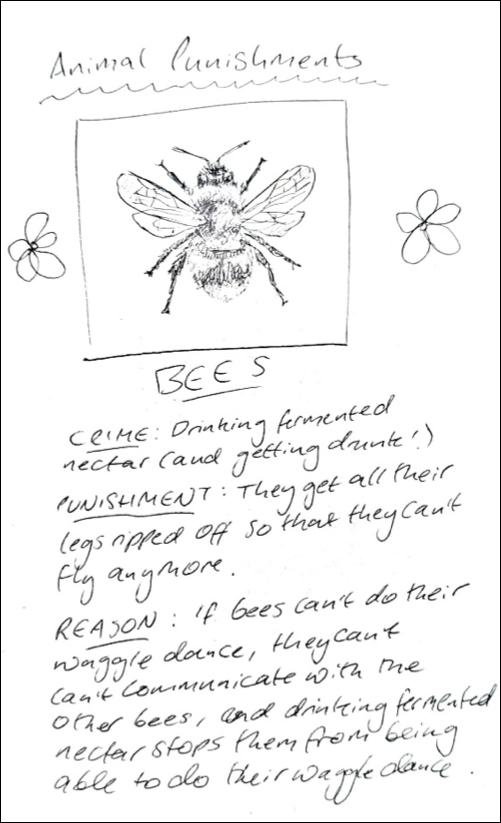 Animal Punishments
BEES
CRIME: Drinking fermented
nectar (and getting drunk!)
PUNISHMENT: They get all their
legs ripped off so that they can't
fly anymore.
REASON: if bees can't do their
waggle dance, they can't
can't communicate with the
other bees, and drinking fermented
nectar stops them from being
able to do their waggle dance.